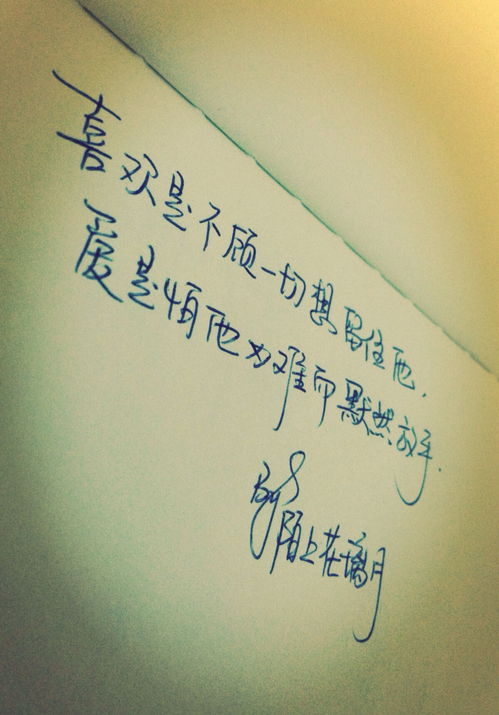 喜欢是不顾一切想留住他.
爱是怕他为难而默然放手.
By 陌上花璃月